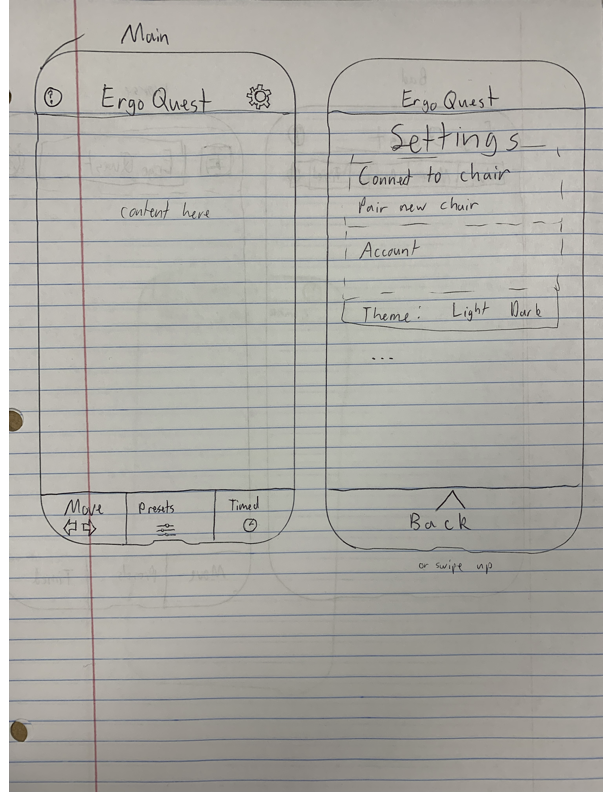 Main
? Ergo Quest
content here
Move Presets Timed
Ergo Quest
Settings
Connect to chair
Pair new chair
Account
Theme: Light Dark
...
Back
or swipe up